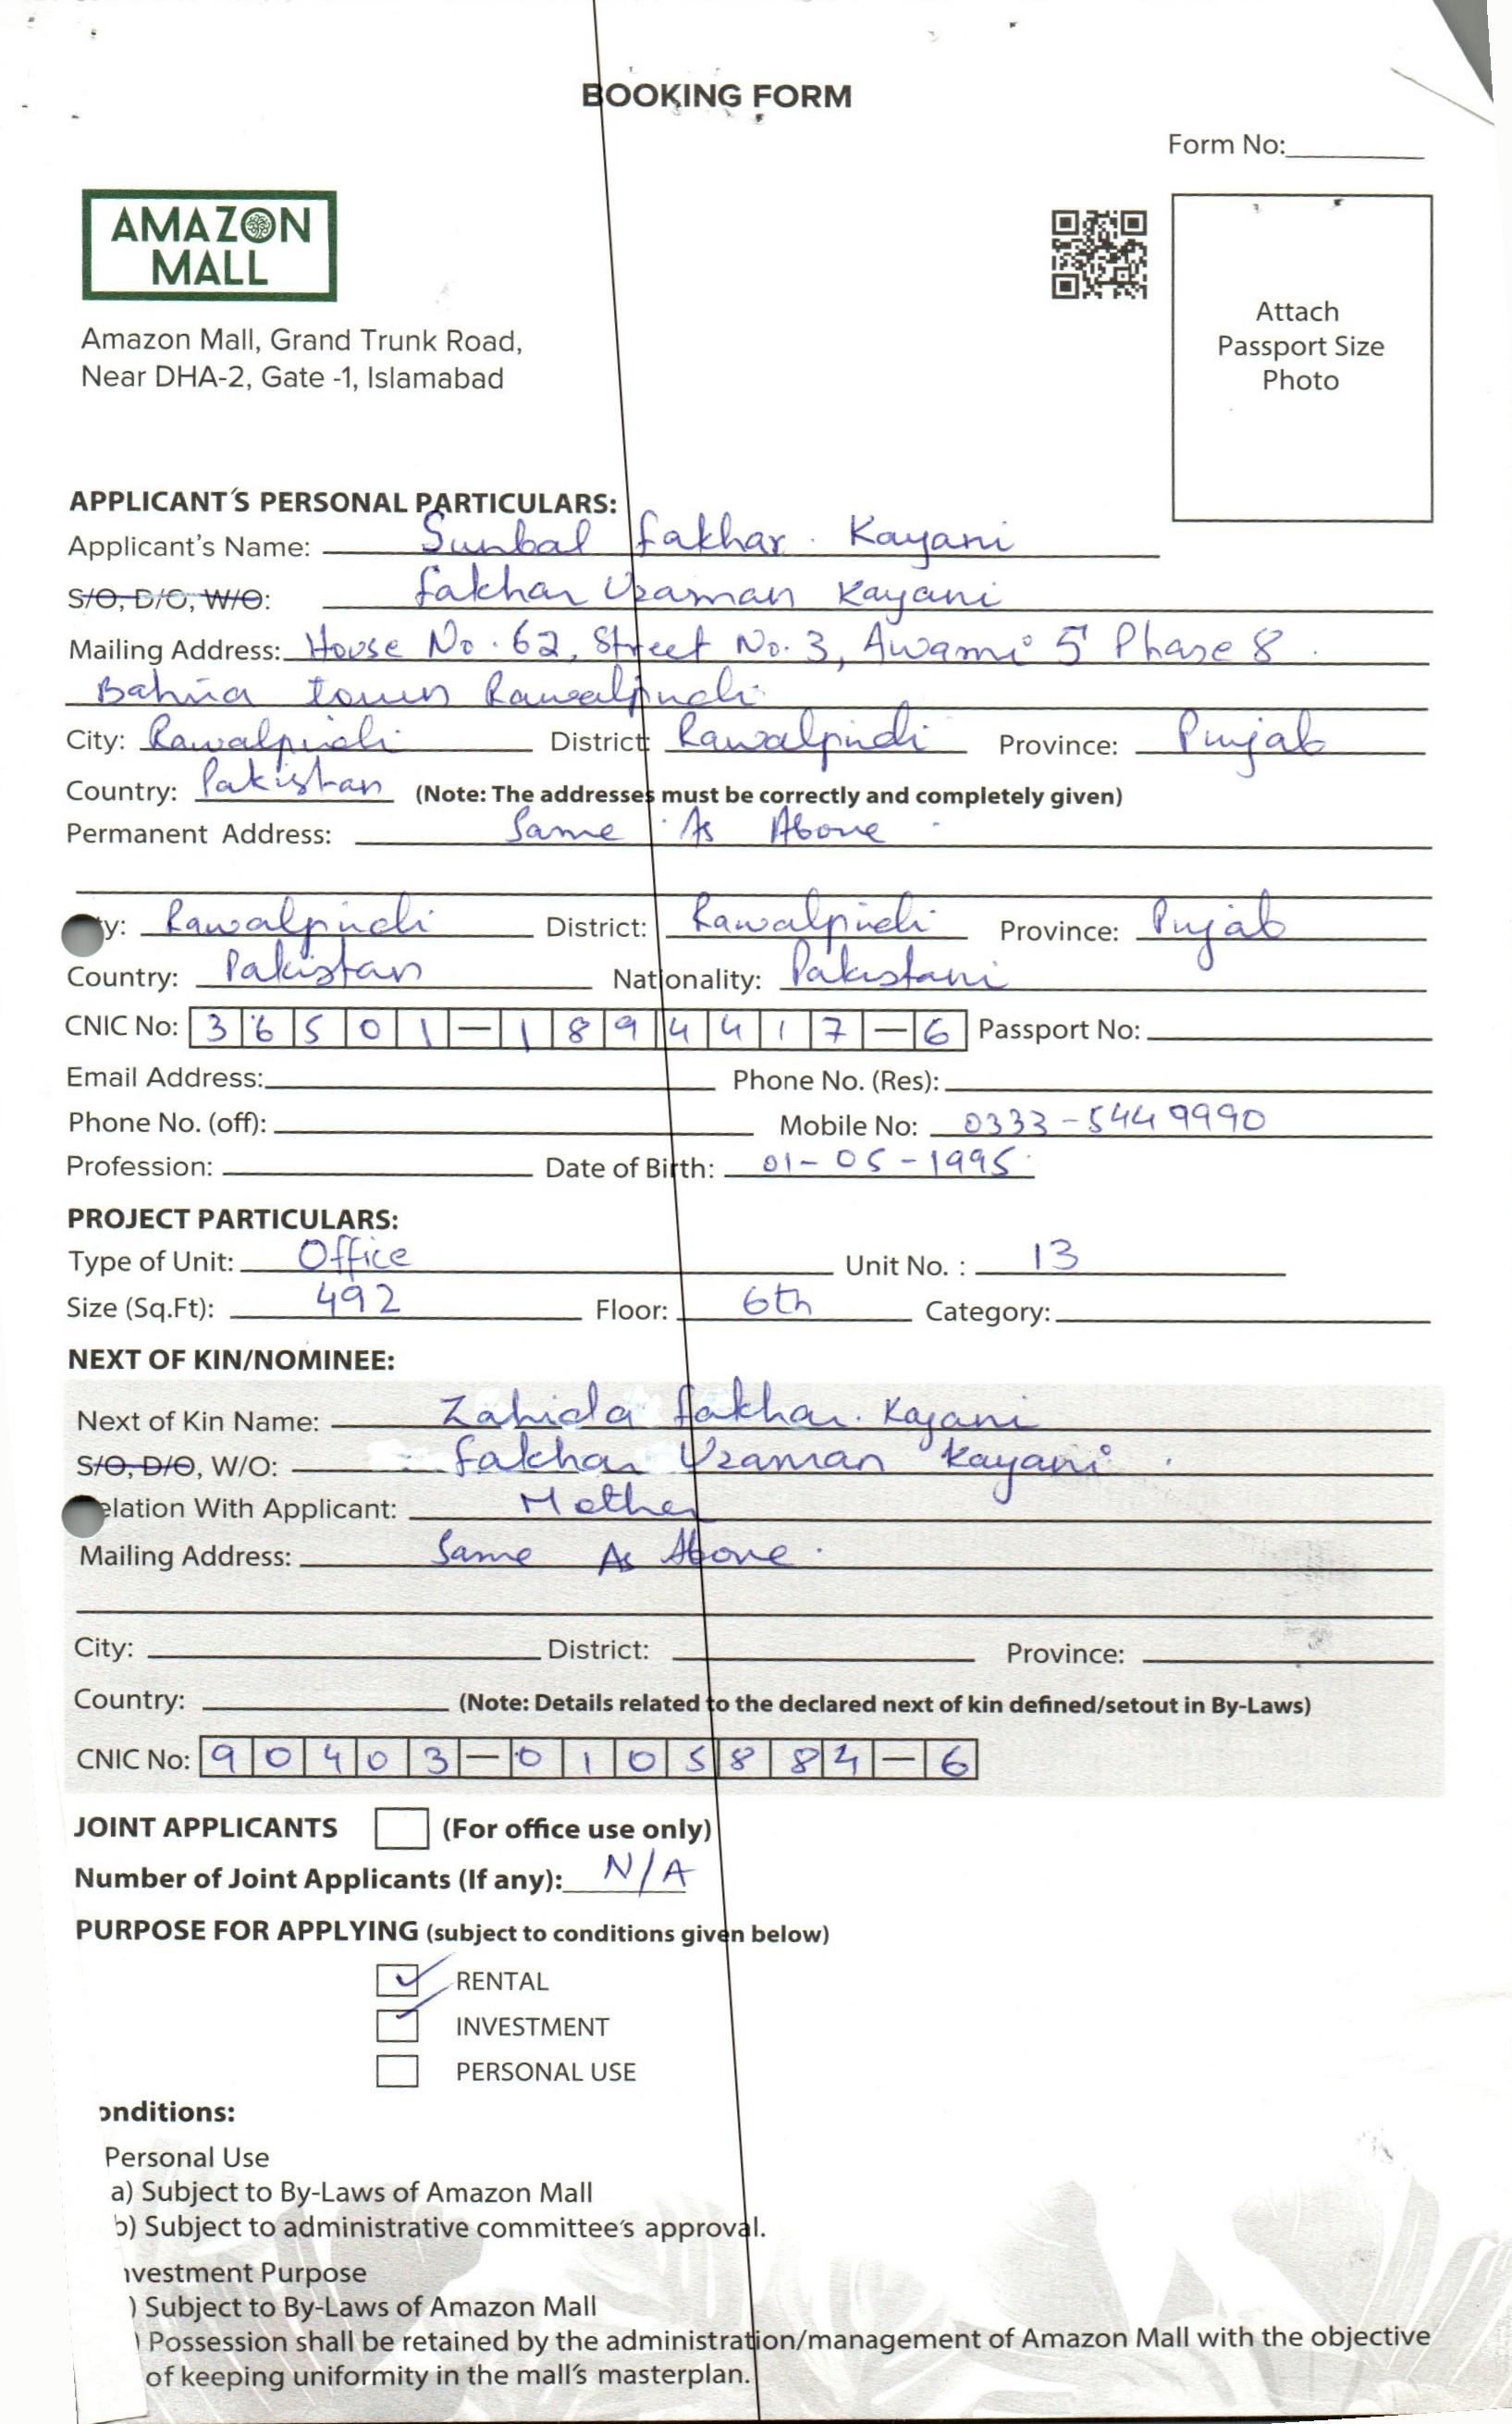 BOOKING FORM
Form No:
AMAZON
MALL
Amazon Mall, Grand Trunk Road,
Near DHA-2, Gate -1, Islamabad
Attach
Passport Size
Photo
APPLICANT´S PERSONAL PARTICULARS:
Applicant's Name: Sunbal Fakhar Kayani
S/O, D/O, W/O: Fakhar Uzaman Kayani
Mailing Address: House No. 62, Street No. 3, Awami 5 Phase 8
Bahria town Rawalpindi
City: Rawalpindi District: Rawalpindi Province: Punjab
Country: Pakistan (Note: The addresses must be correctly and completely given)
Permanent Address: Same As Above
ty: Rawalpindi District: Rawalpindi Province: Punjab
Country: Pakistan Nationality: Pakistani
CNIC No: 36501-1894417-6 Passport No:
Email Address: Phone No. (Res):
Phone No. (off): Mobile No: 0333-5449990
Profession: Date of Birth: 01-05-1995
PROJECT PARTICULARS:
Type of Unit: Office Unit No. : 13
Size (Sq.Ft): 492 Floor: 6th Category:
NEXT OF KIN/NOMINEE:
Next of Kin Name: Zahida Fakhar Kayani
S/O, D/O, W/O: Fakhar Uzaman Kayani
elation With Applicant: Mother
Mailing Address: Same As Above
City: District: Province:
Country: (Note: Details related to the declared next of kin defined/setout in By-Laws)
CNIC No: 90403-0105884-6
JOINT APPLICANTS (For office use only)
Number of Joint Applicants (If any): N/A
PURPOSE FOR APPLYING (subject to conditions given below)
RENTAL
INVESTMENT
PERSONAL USE
onditions:
Personal Use
a) Subject to By-Laws of Amazon Mall
b) Subject to administrative committee's approval.
nvestment Purpose
) Subject to By-Laws of Amazon Mall
) Possession shall be retained by the administration/management of Amazon Mall with the objective
of keeping uniformity in the mall's masterplan.